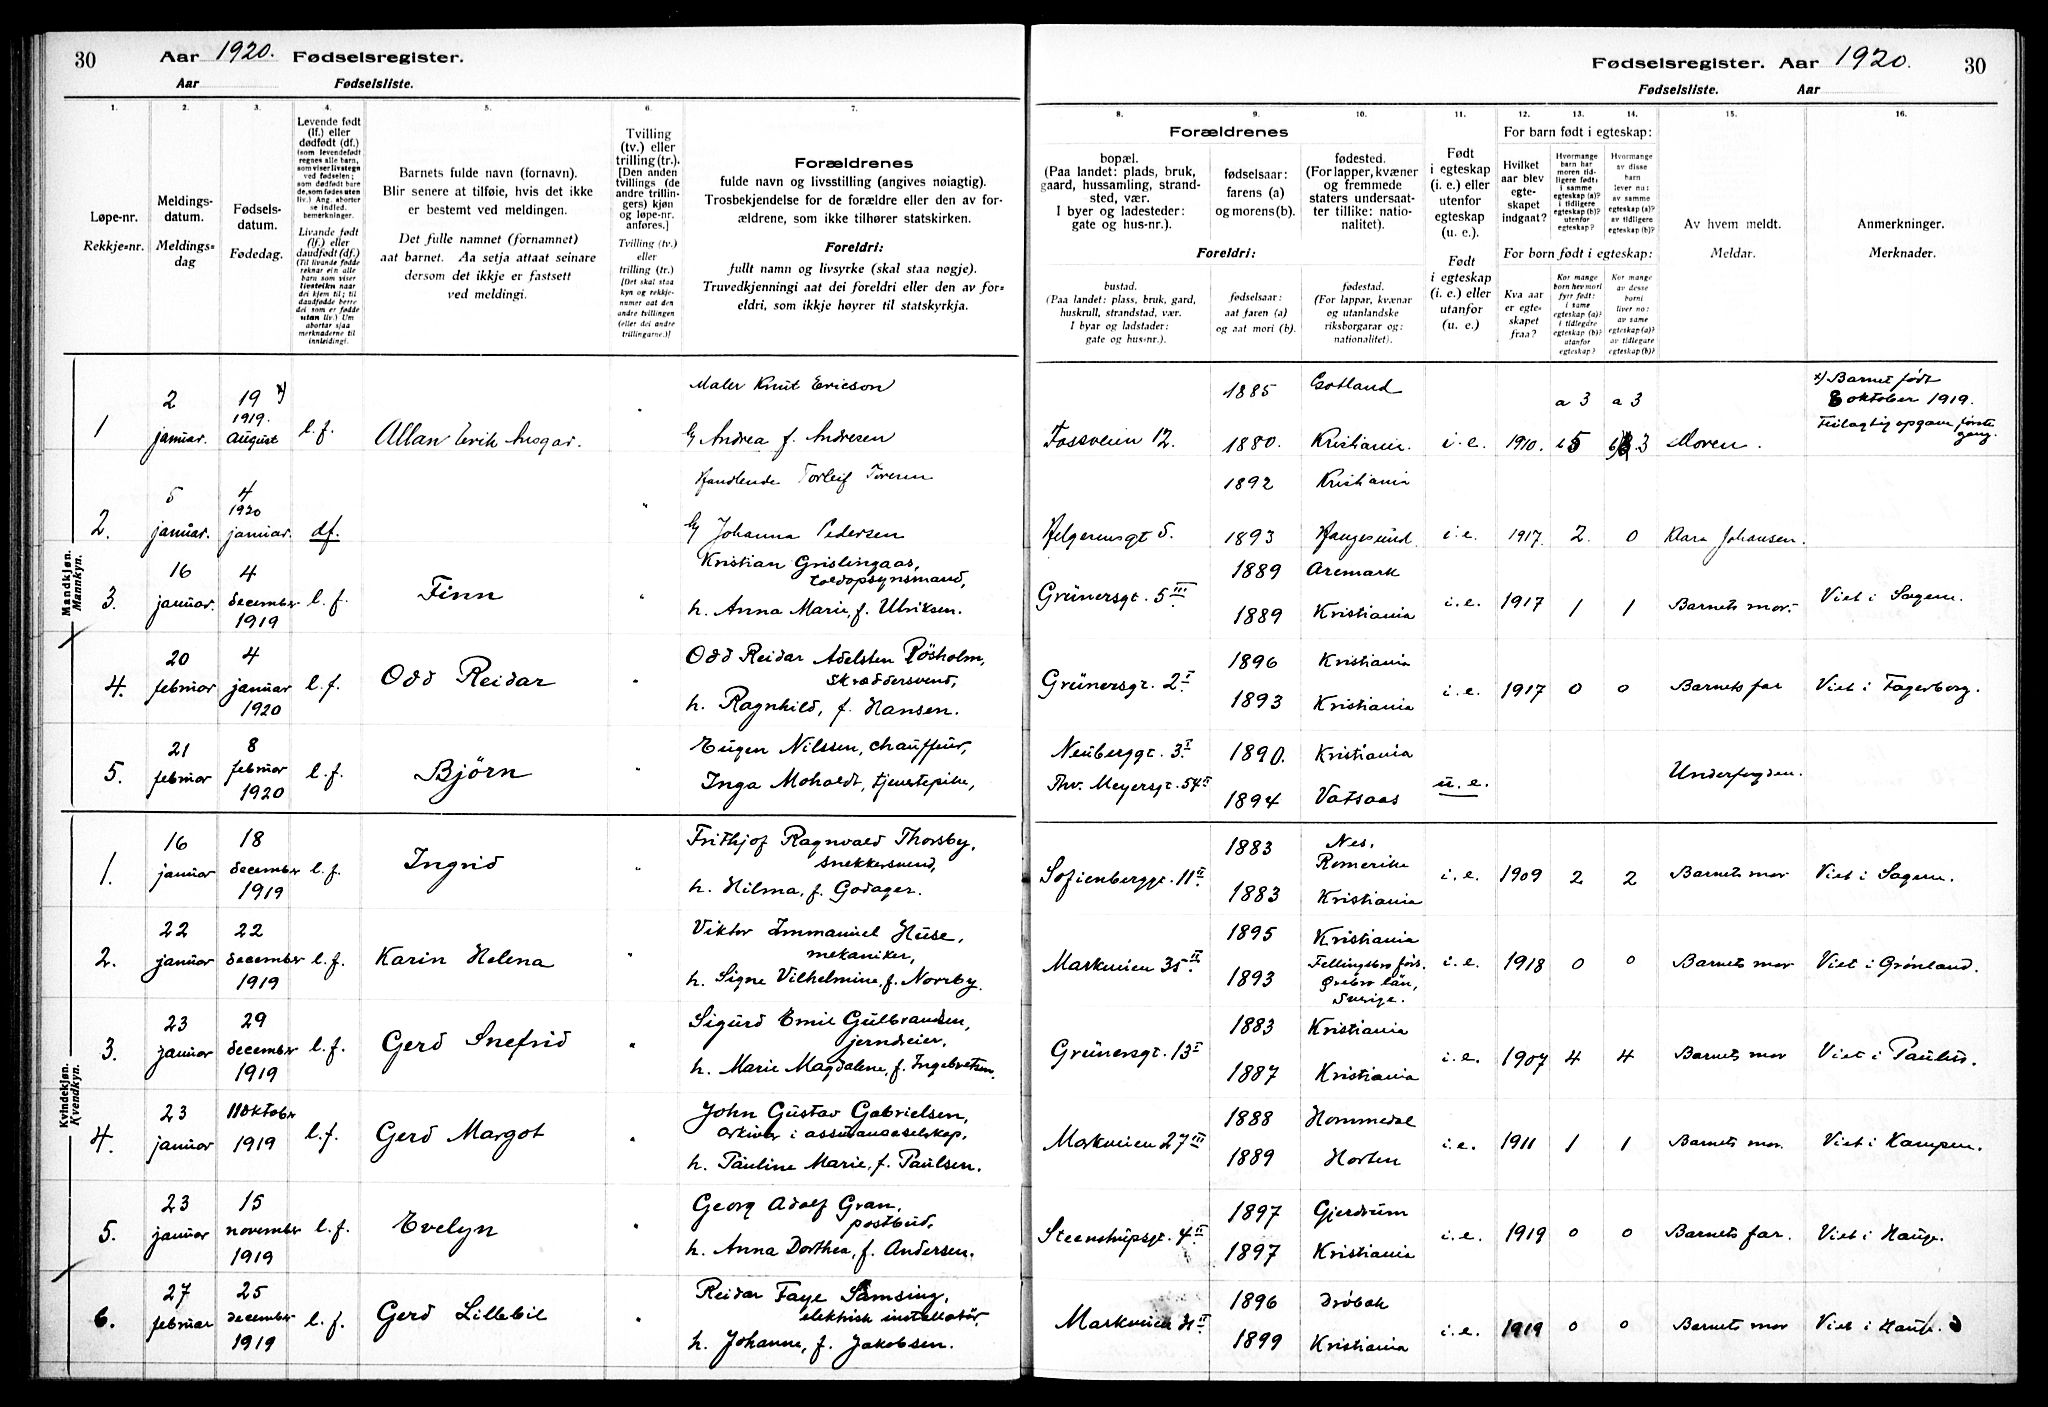 30 Aar 1920. Fødselsregister.
Aar Fødselsliste.
Fødselsregister. Aar 1920. 30
Fødselsliste. Aar
1. 2. 3. 4. 5. 6. 7.
Løpe-nr.
Rekkje-nr.
Meldings-
datum.
Meldings-
dag
Fødsels-
datum.
Fødedag.
Levende født
(lf.) eller
dødfødt (df.)
(som levendefødt
regnes alle barn,
som viser livstegn
ved fødselen;
som dødfødt bare
de, som fødes uten
liv.) Ang. aborter
se indled.
bemerkninger.
Livande født
(lf.) eller
daudfødt (df.)
(Til livande fødde
reknar ein alle
barn som viser
livsteikn naar
dei kjem til; til
daudfødde berre
dei som er fødde
utan liv.) Um
abortar sjaa
merknaderne til
innleidingi.
Barnets fulde navn (fornavn).
Blir senere at tilføie, hvis det ikke
er bestemt ved meldingen.
Det fulle namnet (fornamnet)
aat barnet. Aa setja attaat seinare
dersom det ikkje er fastsett
ved meldingi.
Tvilling
(tv.) eller
trilling (tr.).
[Den anden
tvillings (de
andre trillin-
gers) kjøn
og løpe-nr.
anføres.]
Tvilling (tv.)
eller
trilling (tr.)
[Det skal staa
kyn og rekkje-
numer aat den
andre tvillingen
(eller dei andre
trillingarne.)]
Forældrenes
fulde navn og livsstilling (angives nøiagtig).
Trosbekjendelse for de forældre eller den av for-
ældrene, som ikke tilhører statskirken.
Foreldri:
fullt namn og livsyrke (skal staa nøgje).
Truvedkjenningi aat dei foreldri eller den av for-
eldri, som ikkje høyrer til statskyrkja.
8. 9. 10. 11. 12. 13. 14. 15. 16.
Forældrenes
bopæl.
(Paa landet: plads, bruk,
gaard, hussamling, strand-
sted, vær.
I byer og ladesteder:
gate og hus-nr.).
fødselsaar:
farens (a)
og morens (b).
fødested.
(For lapper, kvæner
og fremmede
staters undersaat-
ter tillike: natio-
nalitet).
Foreldri:
bustad.
(Paa landet: plass, bruk, gard,
huskrull, strandstad, vær.
I byar og ladstader:
gate og hus-nr.).
fødselsaar:
aat faren (a)
og aat mori (b).
fødestad.
(For lappar, kvænar
og utanlandske
riksborgarar og:
nationalitet).
Født
i egteskap
(i. e.) eller
utenfor
egteskap
(u. e.).
Født
i egteskap
(i. e.) eller
utanfor
(u. e.)
For barn født i egteskap:
Hvilket
aar blev
egte-
skapet
indgaat?
Hvormange
barn har
moren tid-
ligere født:
i samme
egteskap (a)?
i tidligere
egteskap (b)?
utenfor
egteskap?
Hvormange
av disse
barn
lever nu:
av samme
egteskap (a)?
av tidligere
egteskap (b)?
For born født i egteskap:
Kva aar
er egte-
skapet
fraa?
Kor mange
born hev mori
fyrr født:
i same
egteskap (a)?
i tidlegdre
egteskap (b)?
utanfor
egteskap?
Kor mange
av desse
borni
liver no:
av same
egteskap (a)?
av tidlegare
egteskap (b)?
Av hvem meldt.
Meldar.
Anmerkninger.
Merknader.
Mandkjøn.
Mannkyn.
1 2 januar. 19 x) 1919. August l.f. Allan Erik Ansgar. " Maler Knut Ericson
Andrea f. Andresen
Fossveien 12. 1885 Gotland
1880. Kristiania. i. e. 1910. a 3 a 3 Moren.
x) Barnet født
8 oktober 1919.
Feilagtig opgave første
gang.
2. 5 januar. 4 1920 januar. df. " Handlende Torleif
Johanna Pedersen
Helgesensgt 5. 1892 Kristiania
1893 Haugesund. i. e. 1917. 2. 0 Klara Johansen.
3. 16 januar. 4 december 1919 l. f. Finn " Kristian Grislingaas,
toldopsynsmand,
h. Anna Marie, f. Ulriksen.
Grünersgt. 5 III. 1889 Aremark
1889 Kristiania i. e. 1917 1 1 Barnets mor. Viet i Sagene.
4. 20 februar 4 januar 1920 l. f. Odd Reidar " Odd Reidar Adelsten Røsholm,
skræddersvend,
h. Ragnhild, f. Hansen.
Grünersgt. 2 I. 1896 Kristiania
1893 Kristiania i. e. 1917 0 0 Barnets far Viet i Fagerborg.
5. 21 februar 8 februar 1920 l. f. Björn " Eugen Nilssen, chauffeur,
Inga Moholdt, tjenestepike,
Neuberggt. 3 I 1890. Kristiania
Thv. Meyersgt. 54 II 1894 Vatsaas u. e. Underfogden.
Kvindekjøn.
Kvendkyn.
1. 16 januar 18 december 1919 l. f. Ingrid " Frithjof Ragnvald Thorsby,
snekkersvend,
h. Hilma, f. Godager.
Sofienberggt. 11 II. 1883 Nes,
Romerike
1883 Kristiania i. e. 1909 2 2 Barnets mor Viet i Sagene.
2. 22 januar 22 december 1919 l. f. Karin Helena " Viktor Immanuel Huse,
mekaniker,
h. Signe Vilhelmine, f. Norrby.
Markveien 35 II. 1895 Kristiania
1893 Fellingsbro förs.
Ørebro län,
Sverige. i. e. 1918 0 0 Barnets mor Viet i Grönland.
3. 23 januar 29 december 1919 l. f. Gerd Snefrid " Sigurd Emil Gulbrandsen,
jerndreier,
h. Marie Magdalene, f. Ingebretsen.
Grünersgt. 13 I 1883 Kristiania
1887 Kristiania i. e. 1907 4 4 Barnets mor Viet i Paulus.
4. 23 januar 11 oktober 1919 l. f. Gerd Margot " John Gustav Gabrielsen,
arkivar i assuranceselskap.
h. Pauline Marie, f. Paulsen.
Markveien 27 III 1888 Hommedal
1889 Horten i. e. 1911 1 1 Barnets mor. Viet i Kampen.
5. 23 januar 15 november 1919 l. f. Evelyn " Georg Adolf Gran,
postbud,
h. Anna Dorthea, f. Andersen.
Steenstrupsgt. 4 II. 1897 Gjerdrum
1897 Kristiania i. e. 1919 0 0 Barnets far. Viet i Hauge.
6. 27 februar 25 december 1919 l. f. Gerd Lillebil " Reidar Faye Samsing,
elektrisk installatør,
h. Johanne, f. Jakobsen.
Markveien II. 1896 Drøbak
1899 Kristiania i. e. 1919 0 0 Barnets mor Viet i Hauge.